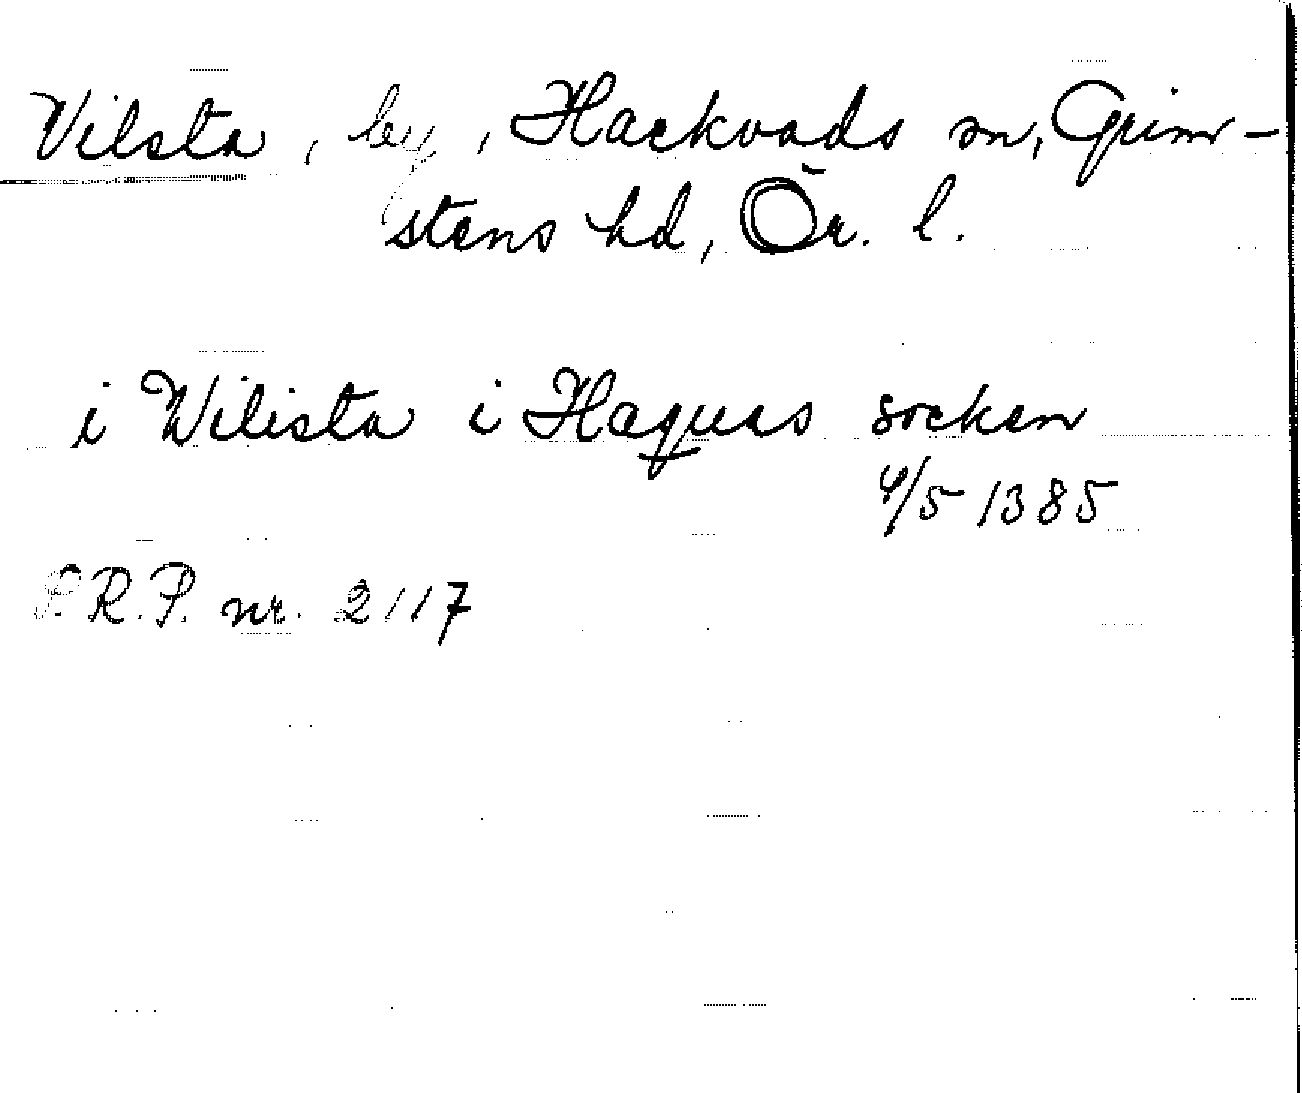 Vilsta, by, Hackvads sn, Grim-
stens hd, Ör. l.
i Wilista i Haquas socken
4/5 1385
S.R.P. nr. 2117